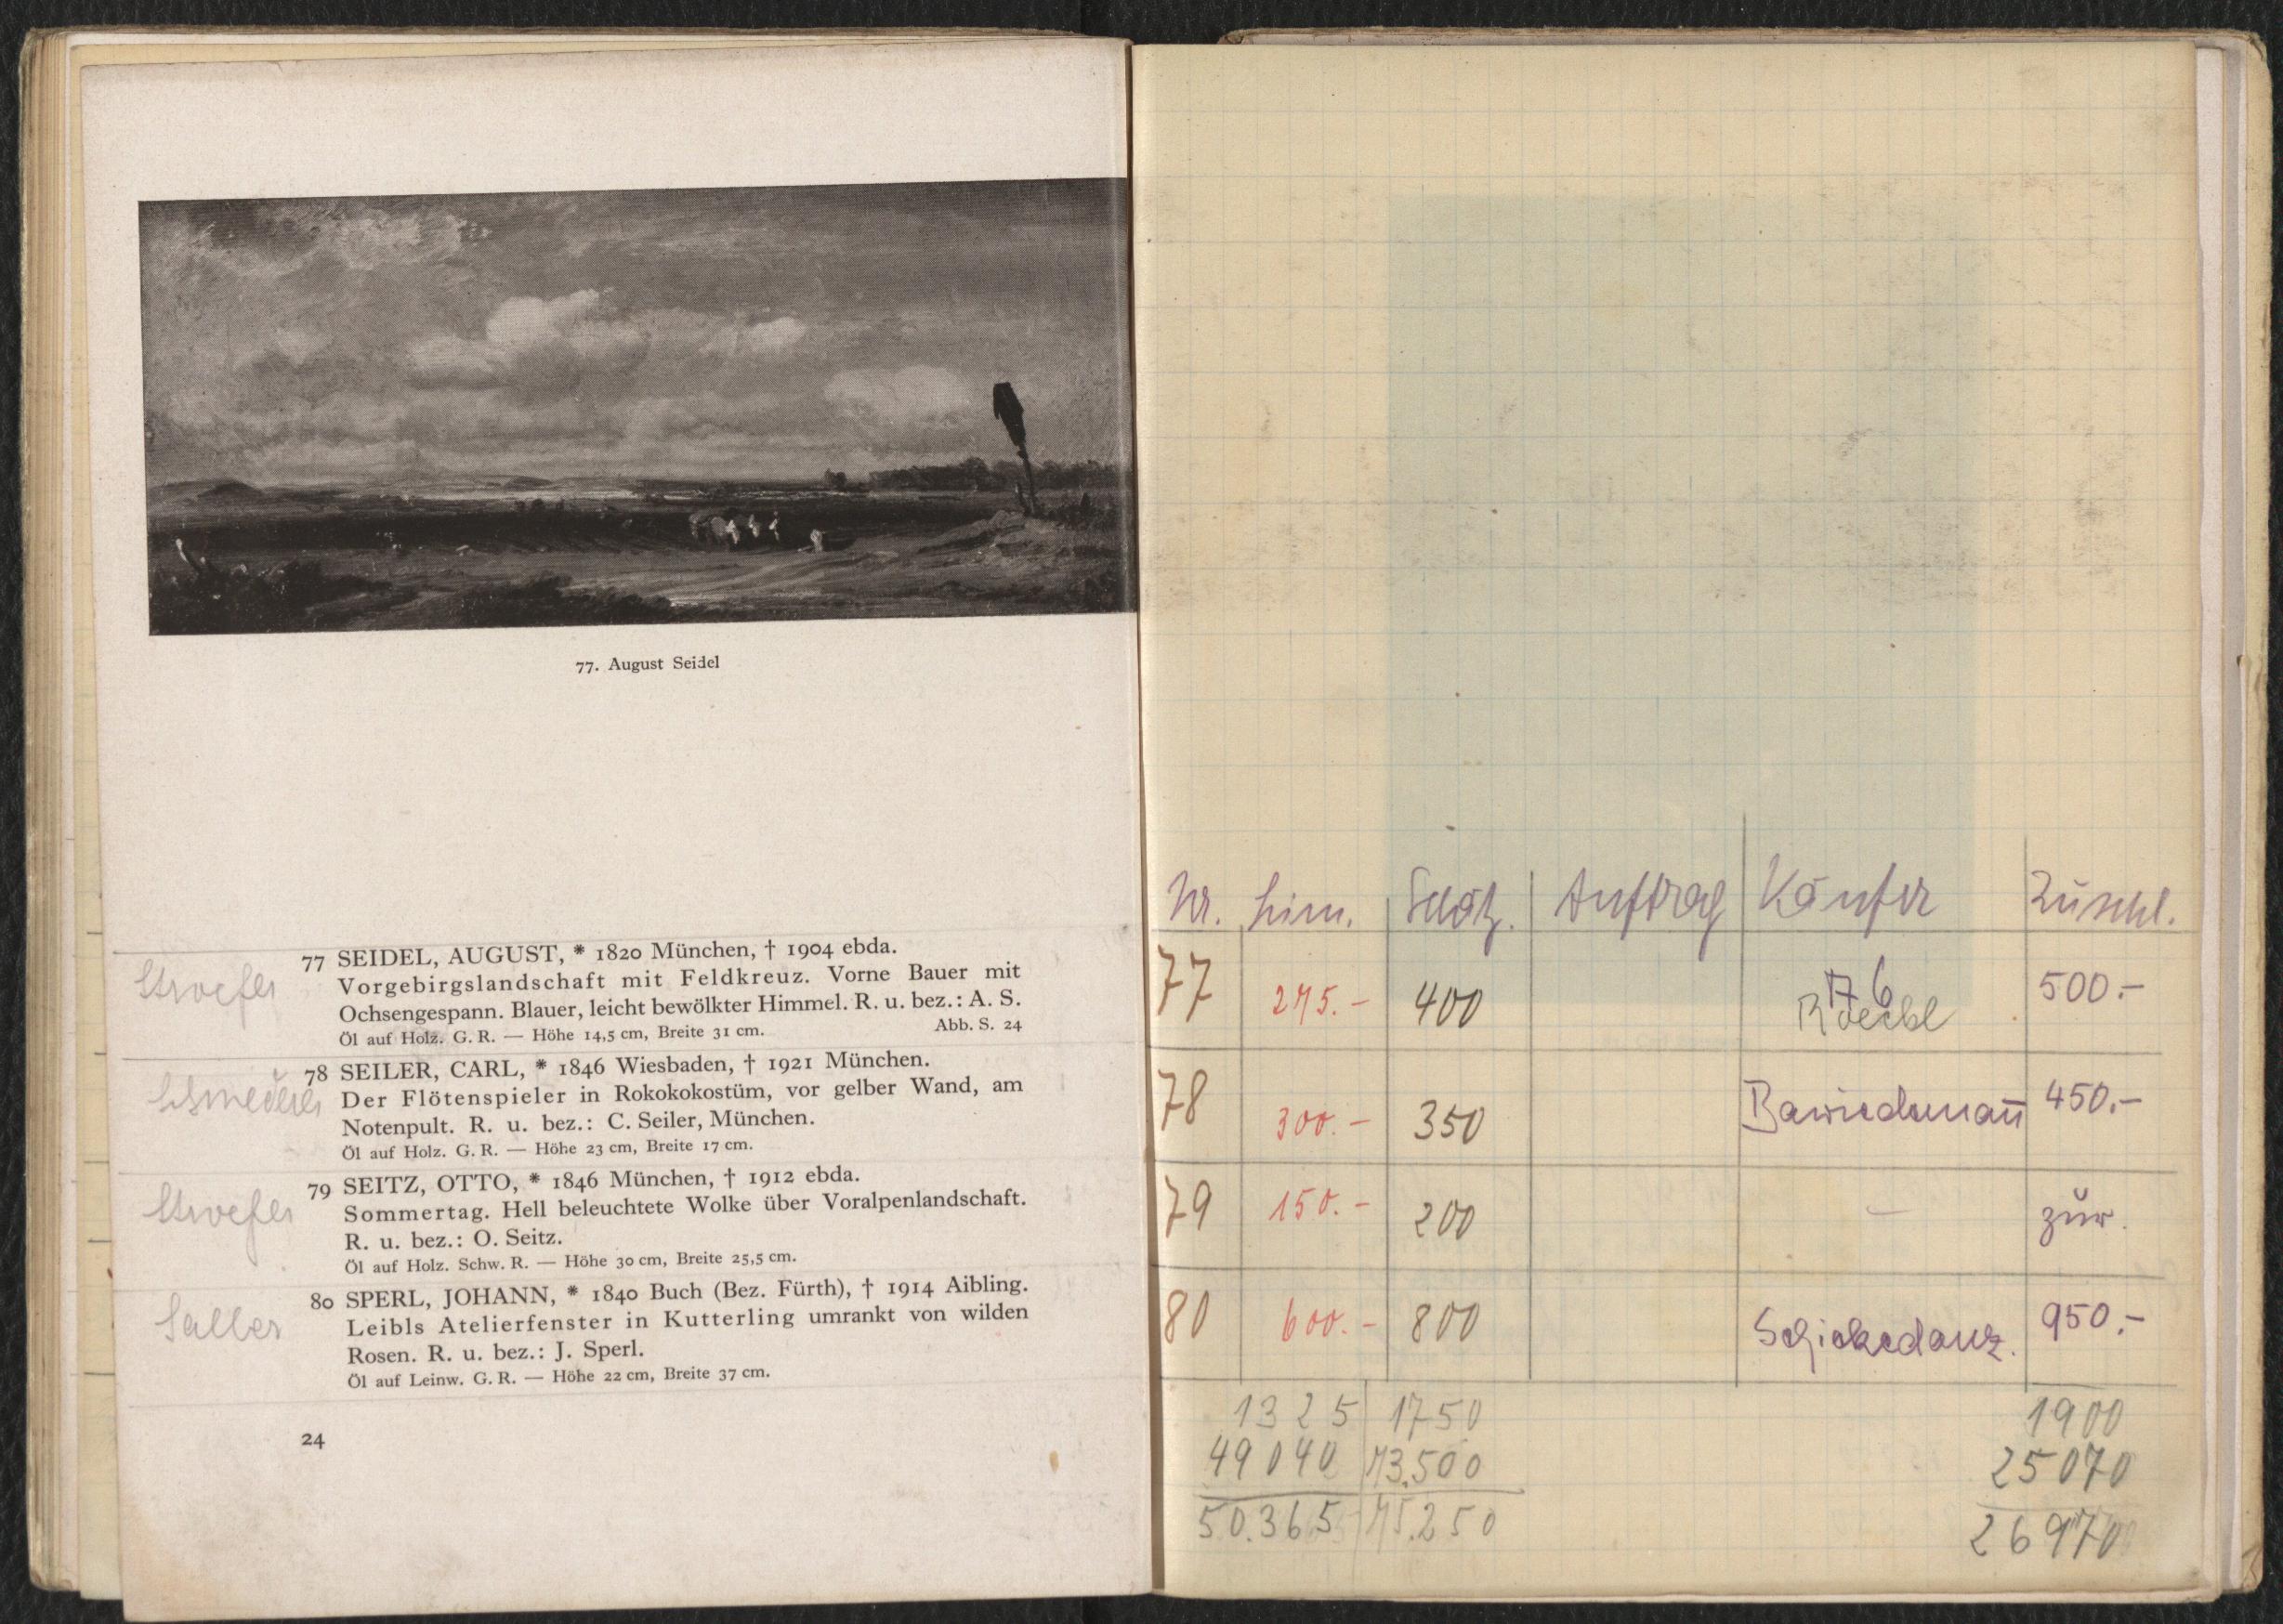 77. August Seidel
77 SEIDEL, AUGUST, * 1820 München, † 1904 ebda.
Vorgebirgslandschaft mit Feldkreuz. Vorne Bauer mit
Ochsengespann. Blauer, leicht bewölkter Himmel. R. u. bez.: A. S.
Öl auf Holz. G. R. — Höhe 14,5 cm, Breite 31 cm. Abb. S. 24
78 SEILER, CARL, * 1846 Wiesbaden, † 1921 München.
Der Flötenspieler in Rokokokostüm, vor gelber Wand, am
Notenpult. R. u. bez.: C. Seiler, München.
Öl auf Holz. G. R. — Höhe 23 cm, Breite 17 cm.
79 SEITZ, OTTO, * 1846 München, † 1912 ebda.
Sommertag. Hell beleuchtete Wolke über Voralpenlandschaft.
R. u. bez.: O. Seitz.
Öl auf Holz. Schw. R. — Höhe 30 cm, Breite 25,5 cm.
Saller
80 SPERL, JOHANN, * 1840 Buch (Bez. Fürth), † 1914 Aibling.
Leibls Atelierfenster in Kutterling umrankt von wilden
Rosen. R. u. bez.: J. Sperl.
Öl auf Leinw. G. R. — Höhe 22 cm, Breite 37 cm.
24
Nr. Lim. Schätz. Auftrag Käufer Zuschl.
77 275.- 400 500.-
78 300.- 350 450.-
79 150.- 200 — zur.
80 600.- 800 Schickedanz. 950.-
1325 1750 1900
49040 73.500 25070
50.365 75.250 26970